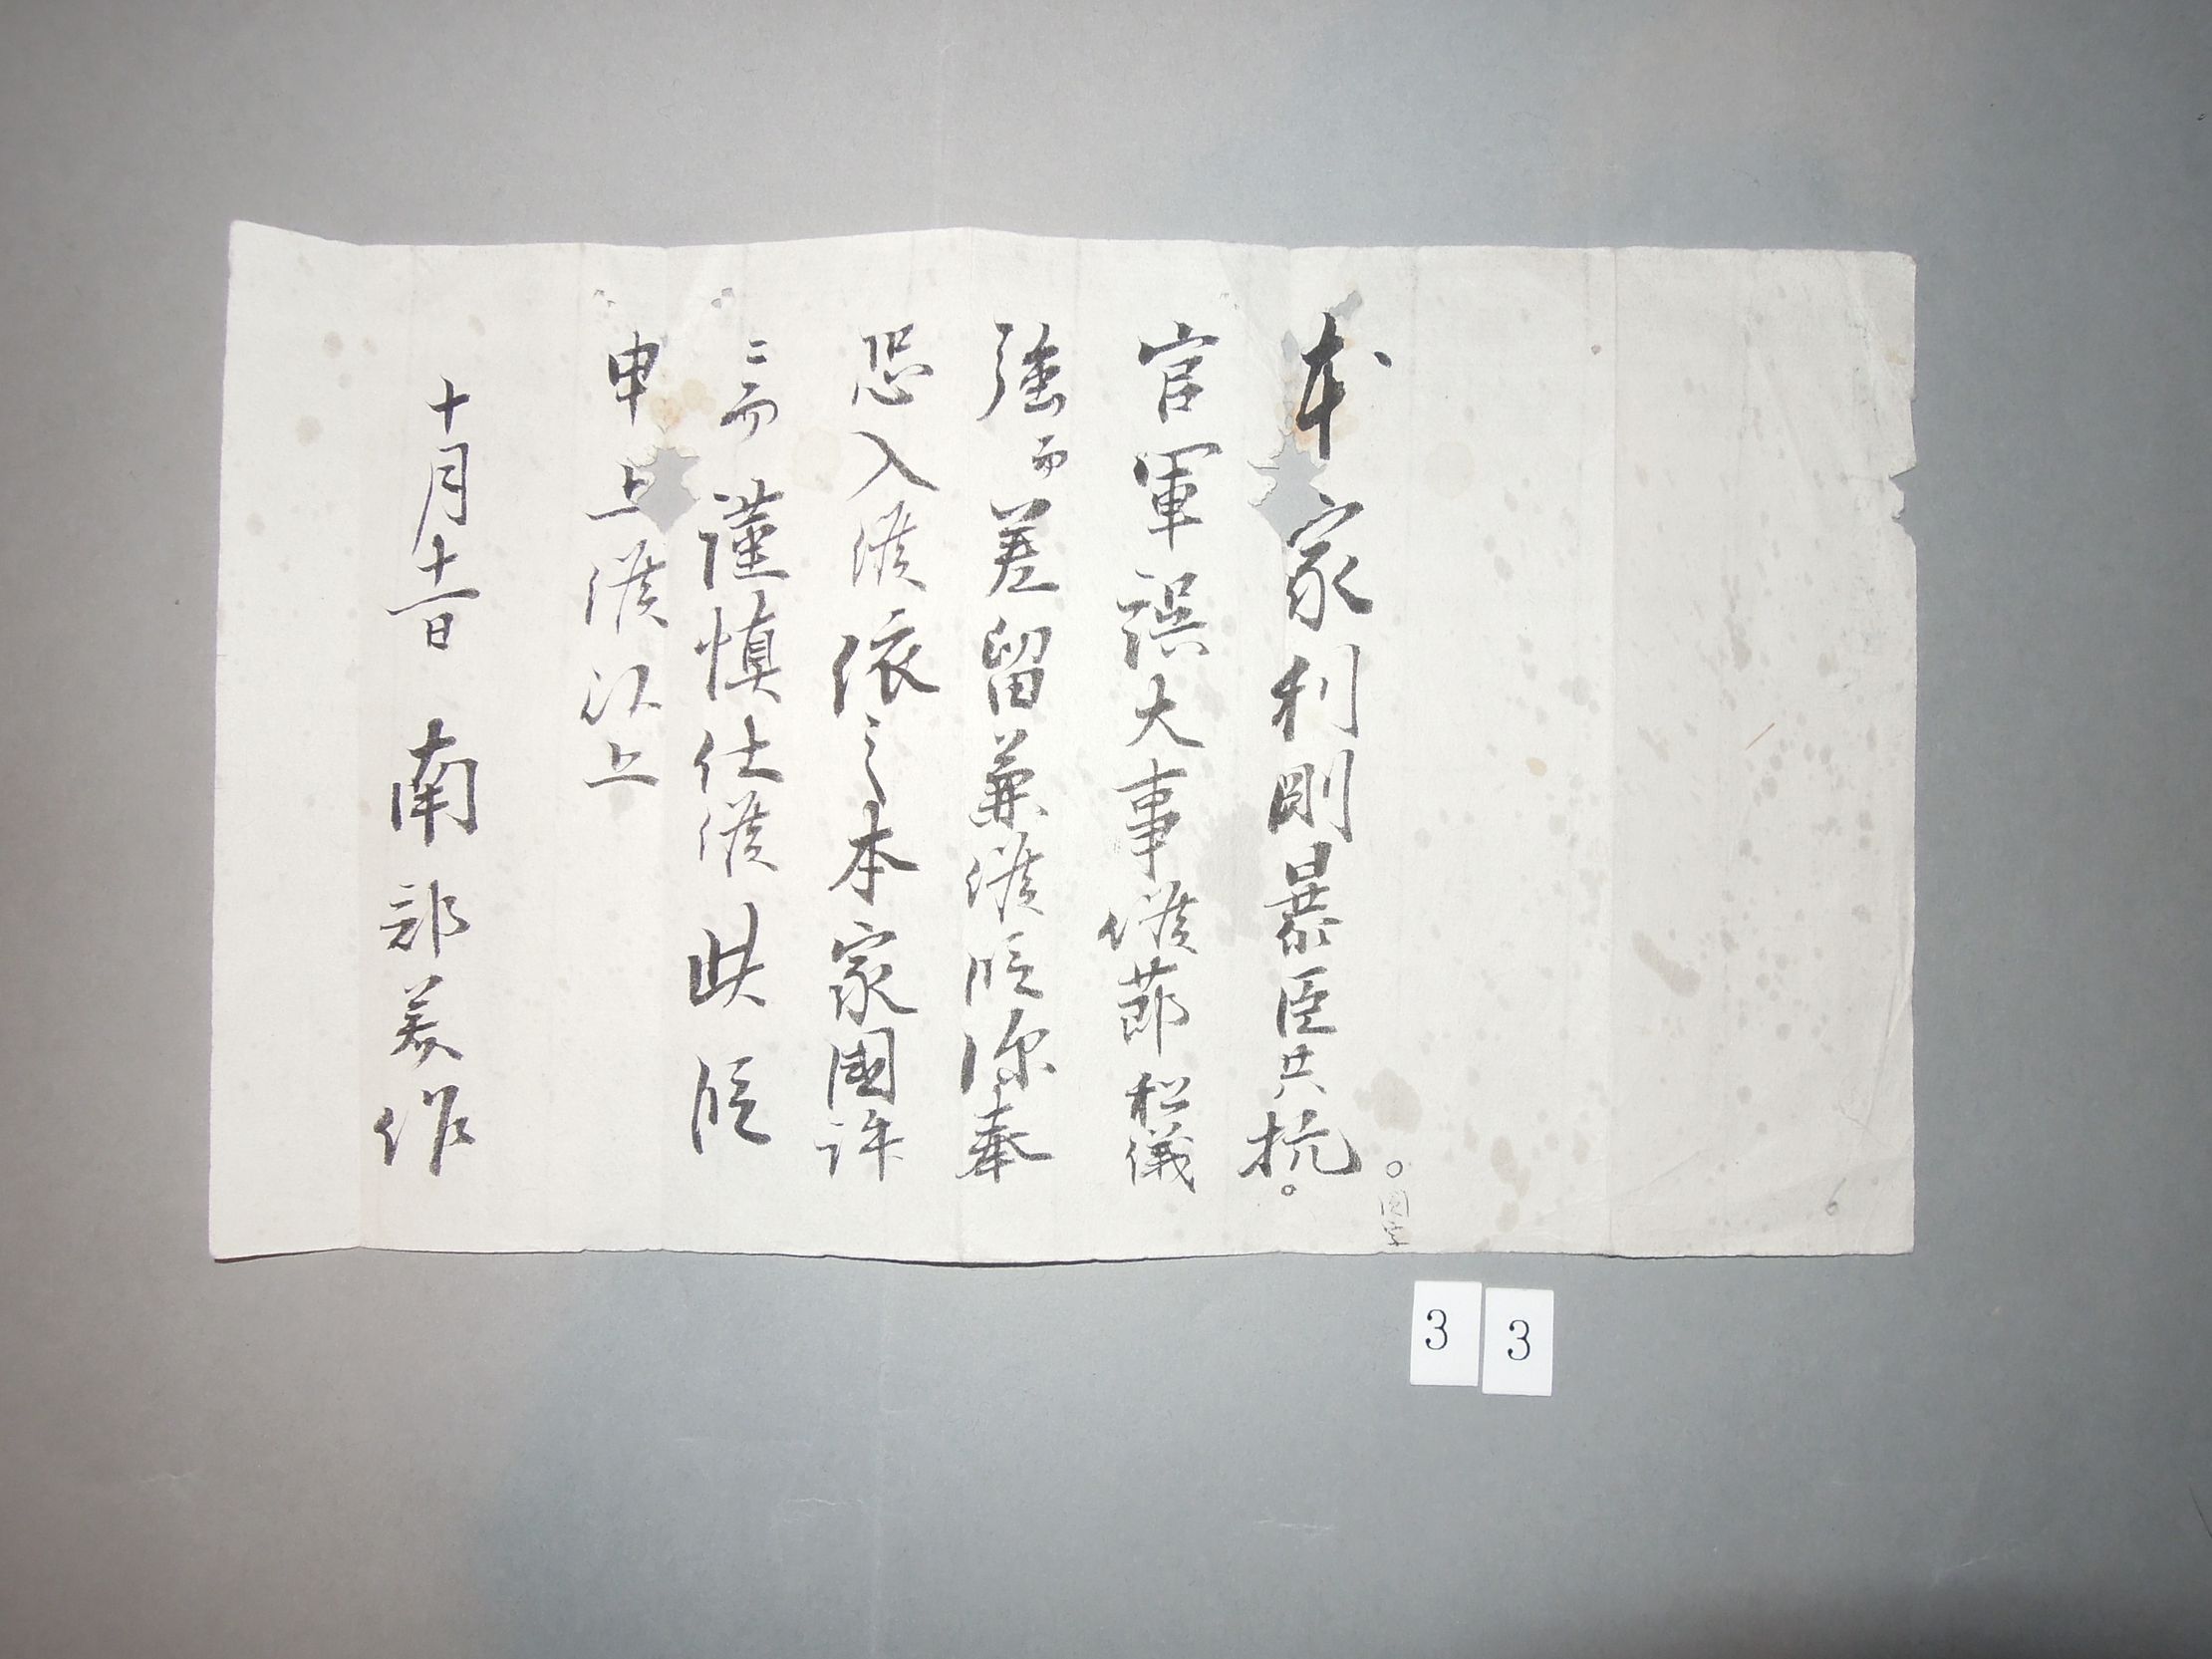 本家利剛暴臣共抗
官軍誤大事候節私儀
強而差留兼候段深奉
恐入候依之本家國許
ニ而謹慎仕候此段
申上候以上
十月十一日 南部美作
6
3 3